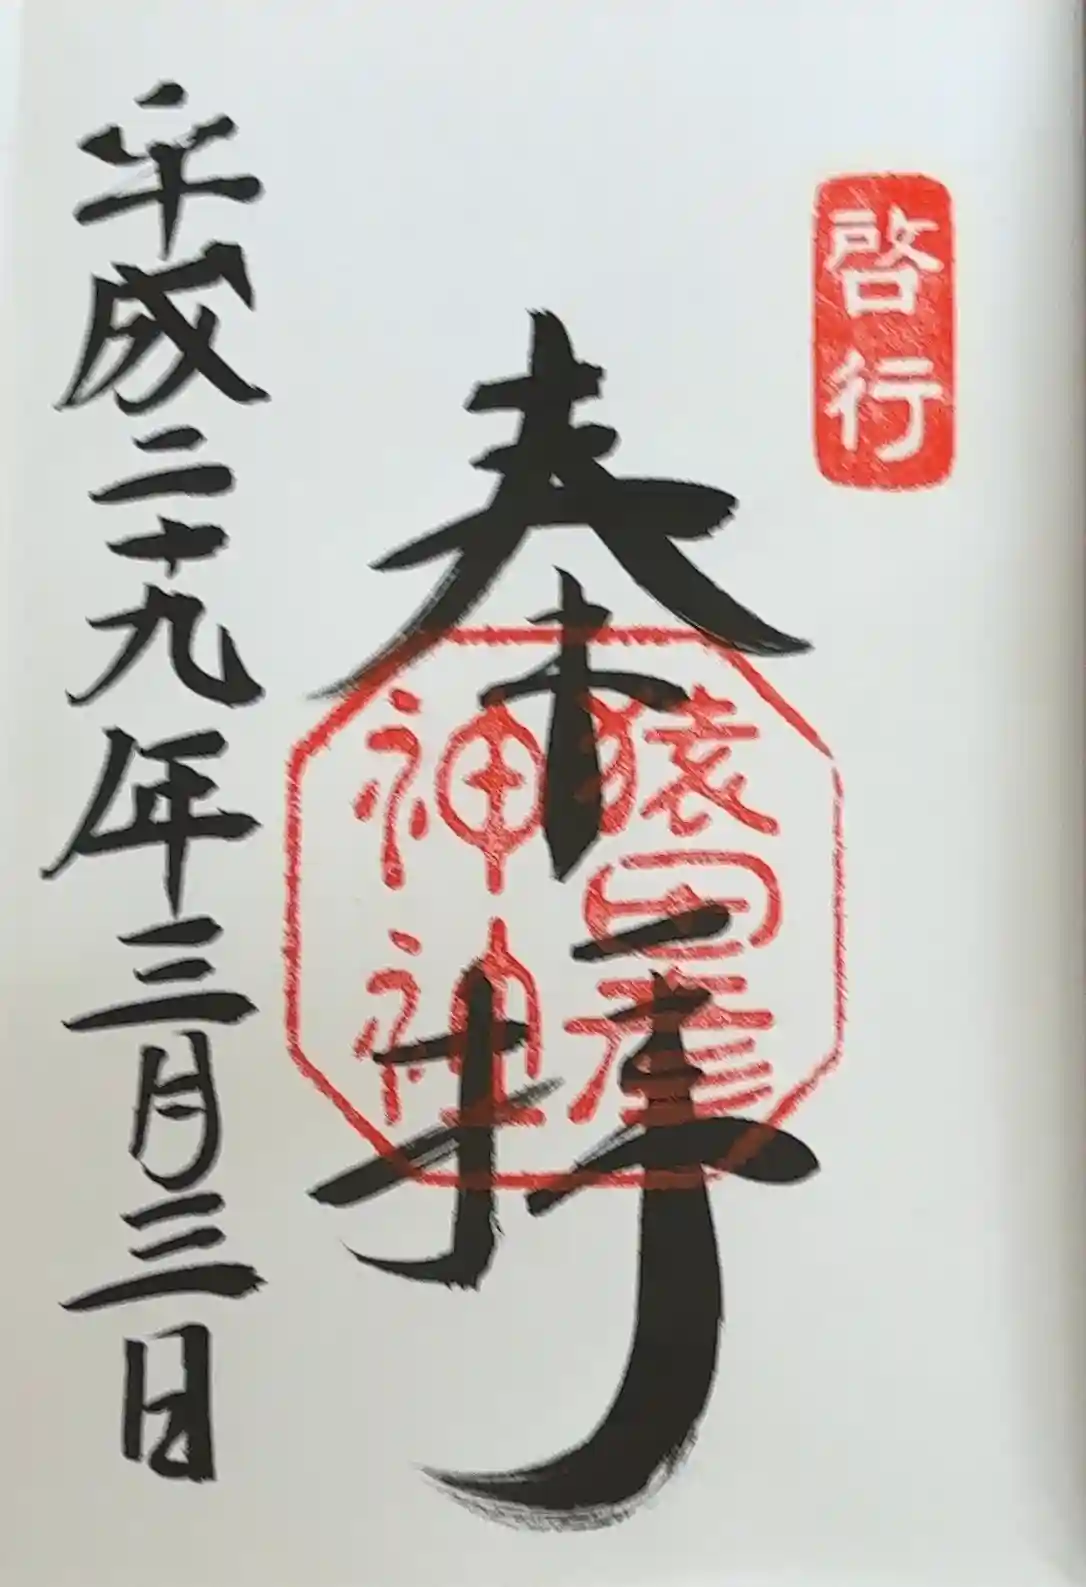 啓行
奉拝
猿田彦
神社
平成二十九年三月三日